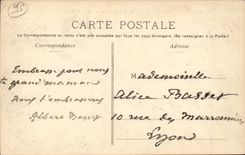 95
CARTE POSTALE
La Correspondance au recto n'est pas acceptée par tous les pays étrangers. (Se renseigner à la Poste.)
Correspondance
Adresse
Embrasse pour nous
ta grand maman
Nous t'embrassons
Albert
Mademoiselle
Alice Basset
10 rue des Marronniers
Lyon